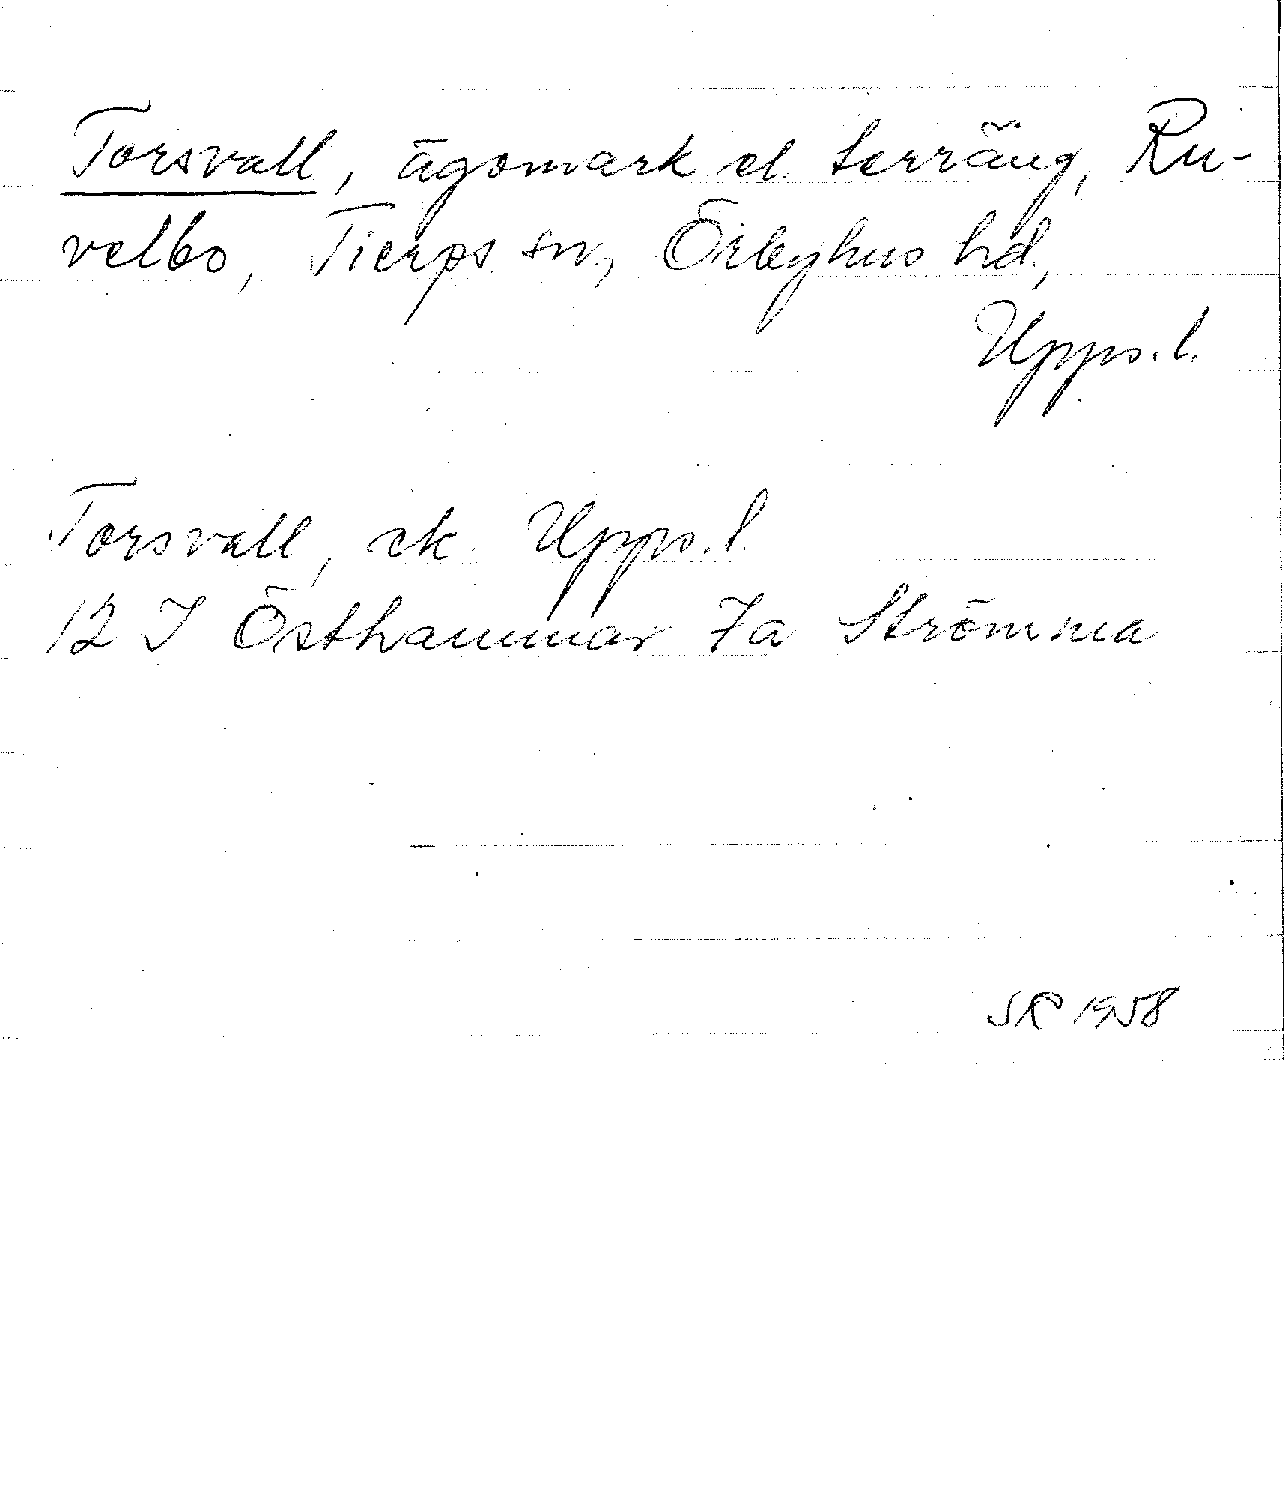 Torsvall, ägomark el. terräng, Ru-
velbo, Tierps sn, Örbyhus hd,
Upps. l.
Torsvall, ek. Upps. l.
12 I Östhammar 7a Strömma
SR 1958